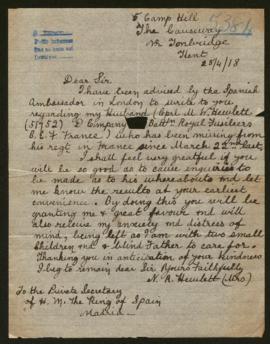 5384
5 Camp Hill
The Causeway
Nr Tonbridge
Kent
25/4/18
Dear Sir.
I have been advised by the Spanish
Ambassador in London to write to you
regarding my Husband (Corpl M. W. Hewlett
(51752) D Company Battn Royal Fusiliers
B.E.F France) who has been missing from
his regt in France since March 22nd last.
I shall feel very grateful if you
will be so good as to cause enquiries to
be made as to his whereabouts and let
me know the results at your earliest
convenience. By doing this you will be
granting me a great favour and will
also relieve my anxiety and distress of
mind, being left as I am with two small
children and a blind Father to care for.
Thanking you in anticipation of your kindness
I beg to remain dear Sir Yours Faithfully
N. R. Hewlett (Mrs)
To the Private Secretary
of H. M. The King of Spain
Madrid